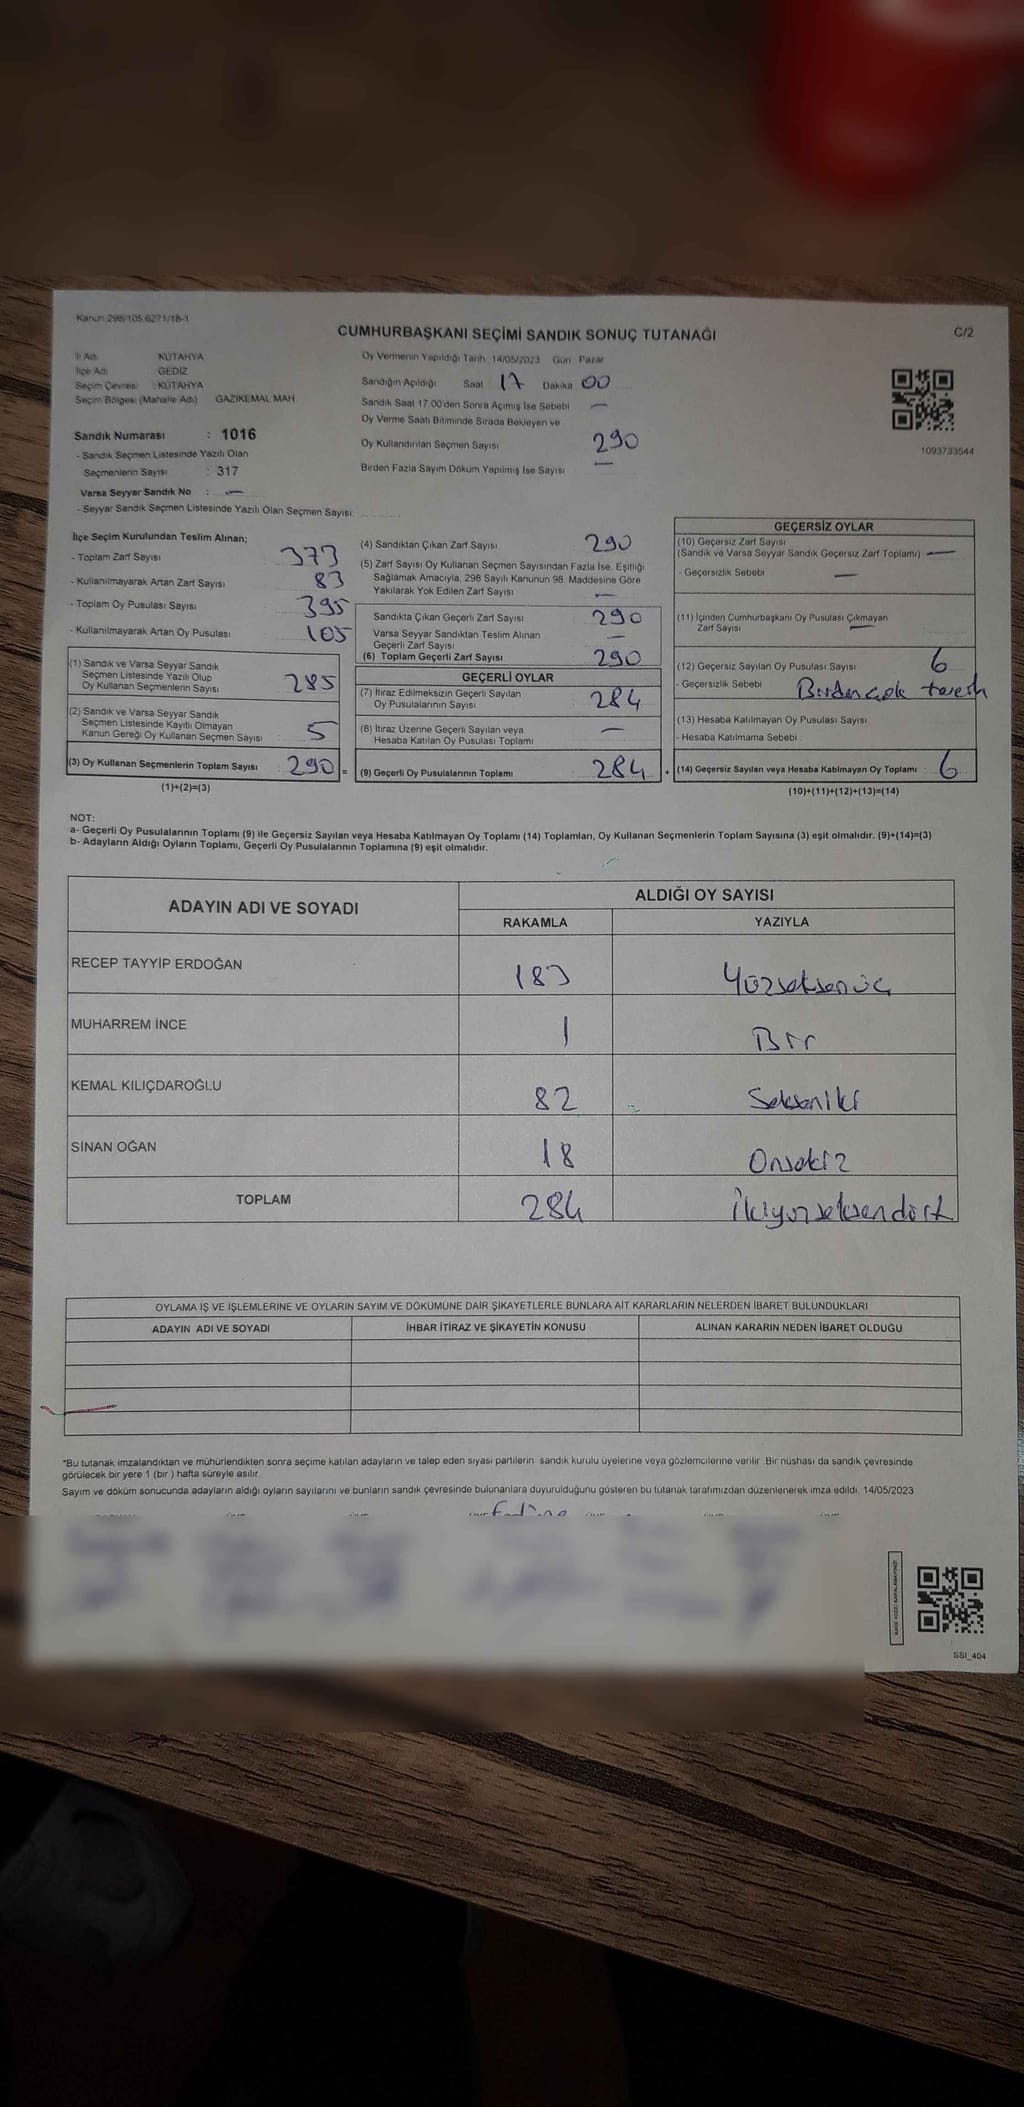 Kanun 298/105 6271/18-1
CUMHURBAŞKANI SEÇİMİ SANDIK SONUÇ TUTANAĞI
C/2
İl Adı KÜTAHYA
İlçe Adı GEDİZ
Seçim Çevresi : KÜTAHYA
Seçim Bölgesi (Mahalle Adı) GAZİKEMAL MAH
Sandık Numarası : 1016
- Sandık Seçmen Listesinde Yazılı Olan
Seçmenlerin Sayısı : 317
Varsa Seyyar Sandık No : —
- Seyyar Sandık Seçmen Listesinde Yazılı Olan Seçmen Sayısı
Oy Vermenin Yapıldığı Tarih 14/05/2023 Gün Pazar
Sandığın Açıldığı Saat 17 Dakika 00
Sandık Saat 17.00'den Sonra Açımış İse Sebebi —
Oy Verme Saati Bitiminde Sırada Bekleyen ve
Oy Kullandırılan Seçmen Sayısı 290
Birden Fazla Sayım Döküm Yapılmış İse Sayısı —
1093733544
İlçe Seçim Kurulundan Teslim Alınan;
- Toplam Zarf Sayısı 373
- Kullanılmayarak Artan Zarf Sayısı 83
- Toplam Oy Pusulası Sayısı 395
- Kullanılmayarak Artan Oy Pusulası 105
(1) Sandık ve Varsa Seyyar Sandık
Seçmen Listesinde Yazılı Olup
Oy Kullanan Seçmenlerin Sayısı 285
(2) Sandık ve Varsa Seyyar Sandık
Seçmen Listesinde Kayıtlı Olmayan
Kanun Gereği Oy Kullanan Seçmen Sayısı 5
(3) Oy Kullanan Seçmenlerin Toplam Sayısı 290 =
(1)+(2)=(3)
(4) Sandıktan Çıkan Zarf Sayısı 290
(5) Zarf Sayısı Oy Kullanan Seçmen Sayısından Fazla İse, Eşitliği
Sağlamak Amacıyla, 298 Sayılı Kanunun 98. Maddesine Göre
Yakılarak Yok Edilen Zarf Sayısı —
Sandıkta Çıkan Geçerli Zarf Sayısı 290
Varsa Seyyar Sandıktan Teslim Alınan
Geçerli Zarf Sayısı —
(6) Toplam Geçerli Zarf Sayısı 290
GEÇERLİ OYLAR
(7) İtiraz Edilmeksizin Geçerli Sayılan
Oy Pusulalarının Sayısı 284
(8) İtiraz Üzerine Geçerli Sayılan veya
Hesaba Katılan Oy Pusulası Toplamı —
(9) Geçerli Oy Pusulalarının Toplamı 284 +
GEÇERSİZ OYLAR
(10) Geçersiz Zarf Sayısı
(Sandık ve Varsa Seyyar Sandık Geçersiz Zarf Toplamı) —
- Geçersizlik Sebebi —
(11) İçinden Cumhurbaşkanı Oy Pusulası Çıkmayan
Zarf Sayısı —
(12) Geçersiz Sayılan Oy Pusulası Sayısı 6
- Geçersizlik Sebebi Birden çok tercih
(13) Hesaba Katılmayan Oy Pusulası Sayısı
- Hesaba Katılmama Sebebi :
(14) Geçersiz Sayılan veya Hesaba Katılmayan Oy Toplamı : 6
(10)+(11)+(12)+(13)=(14)
NOT:
a- Geçerli Oy Pusulalarının Toplamı (9) ile Geçersiz Sayılan veya Hesaba Katılmayan Oy Toplamı (14) Toplamları, Oy Kullanan Seçmenlerin Toplam Sayısına (3) eşit olmalıdır. (9)+(14)=(3)
b- Adayların Aldığı Oyların Toplamı, Geçerli Oy Pusulalarının Toplamına (9) eşit olmalıdır.
ADAYIN ADI VE SOYADI
ALDIĞI OY SAYISI
RAKAMLA YAZIYLA
RECEP TAYYİP ERDOĞAN 183 Yüzseksenüç
MUHARREM İNCE 1 Bir
KEMAL KILIÇDAROĞLU 82 Sekseniki
SİNAN OĞAN 18 Onsekiz
TOPLAM 284 İkiyüzseksendört
OYLAMA İŞ VE İŞLEMLERİNE VE OYLARIN SAYIM VE DÖKÜMÜNE DAİR ŞİKAYETLERLE BUNLARA AİT KARARLARIN NELERDEN İBARET BULUNDUKLARI
ADAYIN ADI VE SOYADI İHBAR İTİRAZ VE ŞİKAYETİN KONUSU ALINAN KARARIN NEDEN İBARET OLDUĞU
*Bu tutanak imzalandıktan ve mühürlendikten sonra seçime katılan adayların ve talep eden siyasi partilerin sandık kurulu üyelerine veya gözlemcilerine verilir. Bir nüshası da sandık çevresinde
görülecek bir yere 1 (bir) hafta süreyle asılır.
Sayım ve döküm sonucunda adayların aldığı oyların sayılarını ve bunların sandık çevresinde bulunanlara duyurulduğunu gösteren bu tutanak tarafımızdan düzenlenerek imza edildi. 14/05/2023
SSI_404